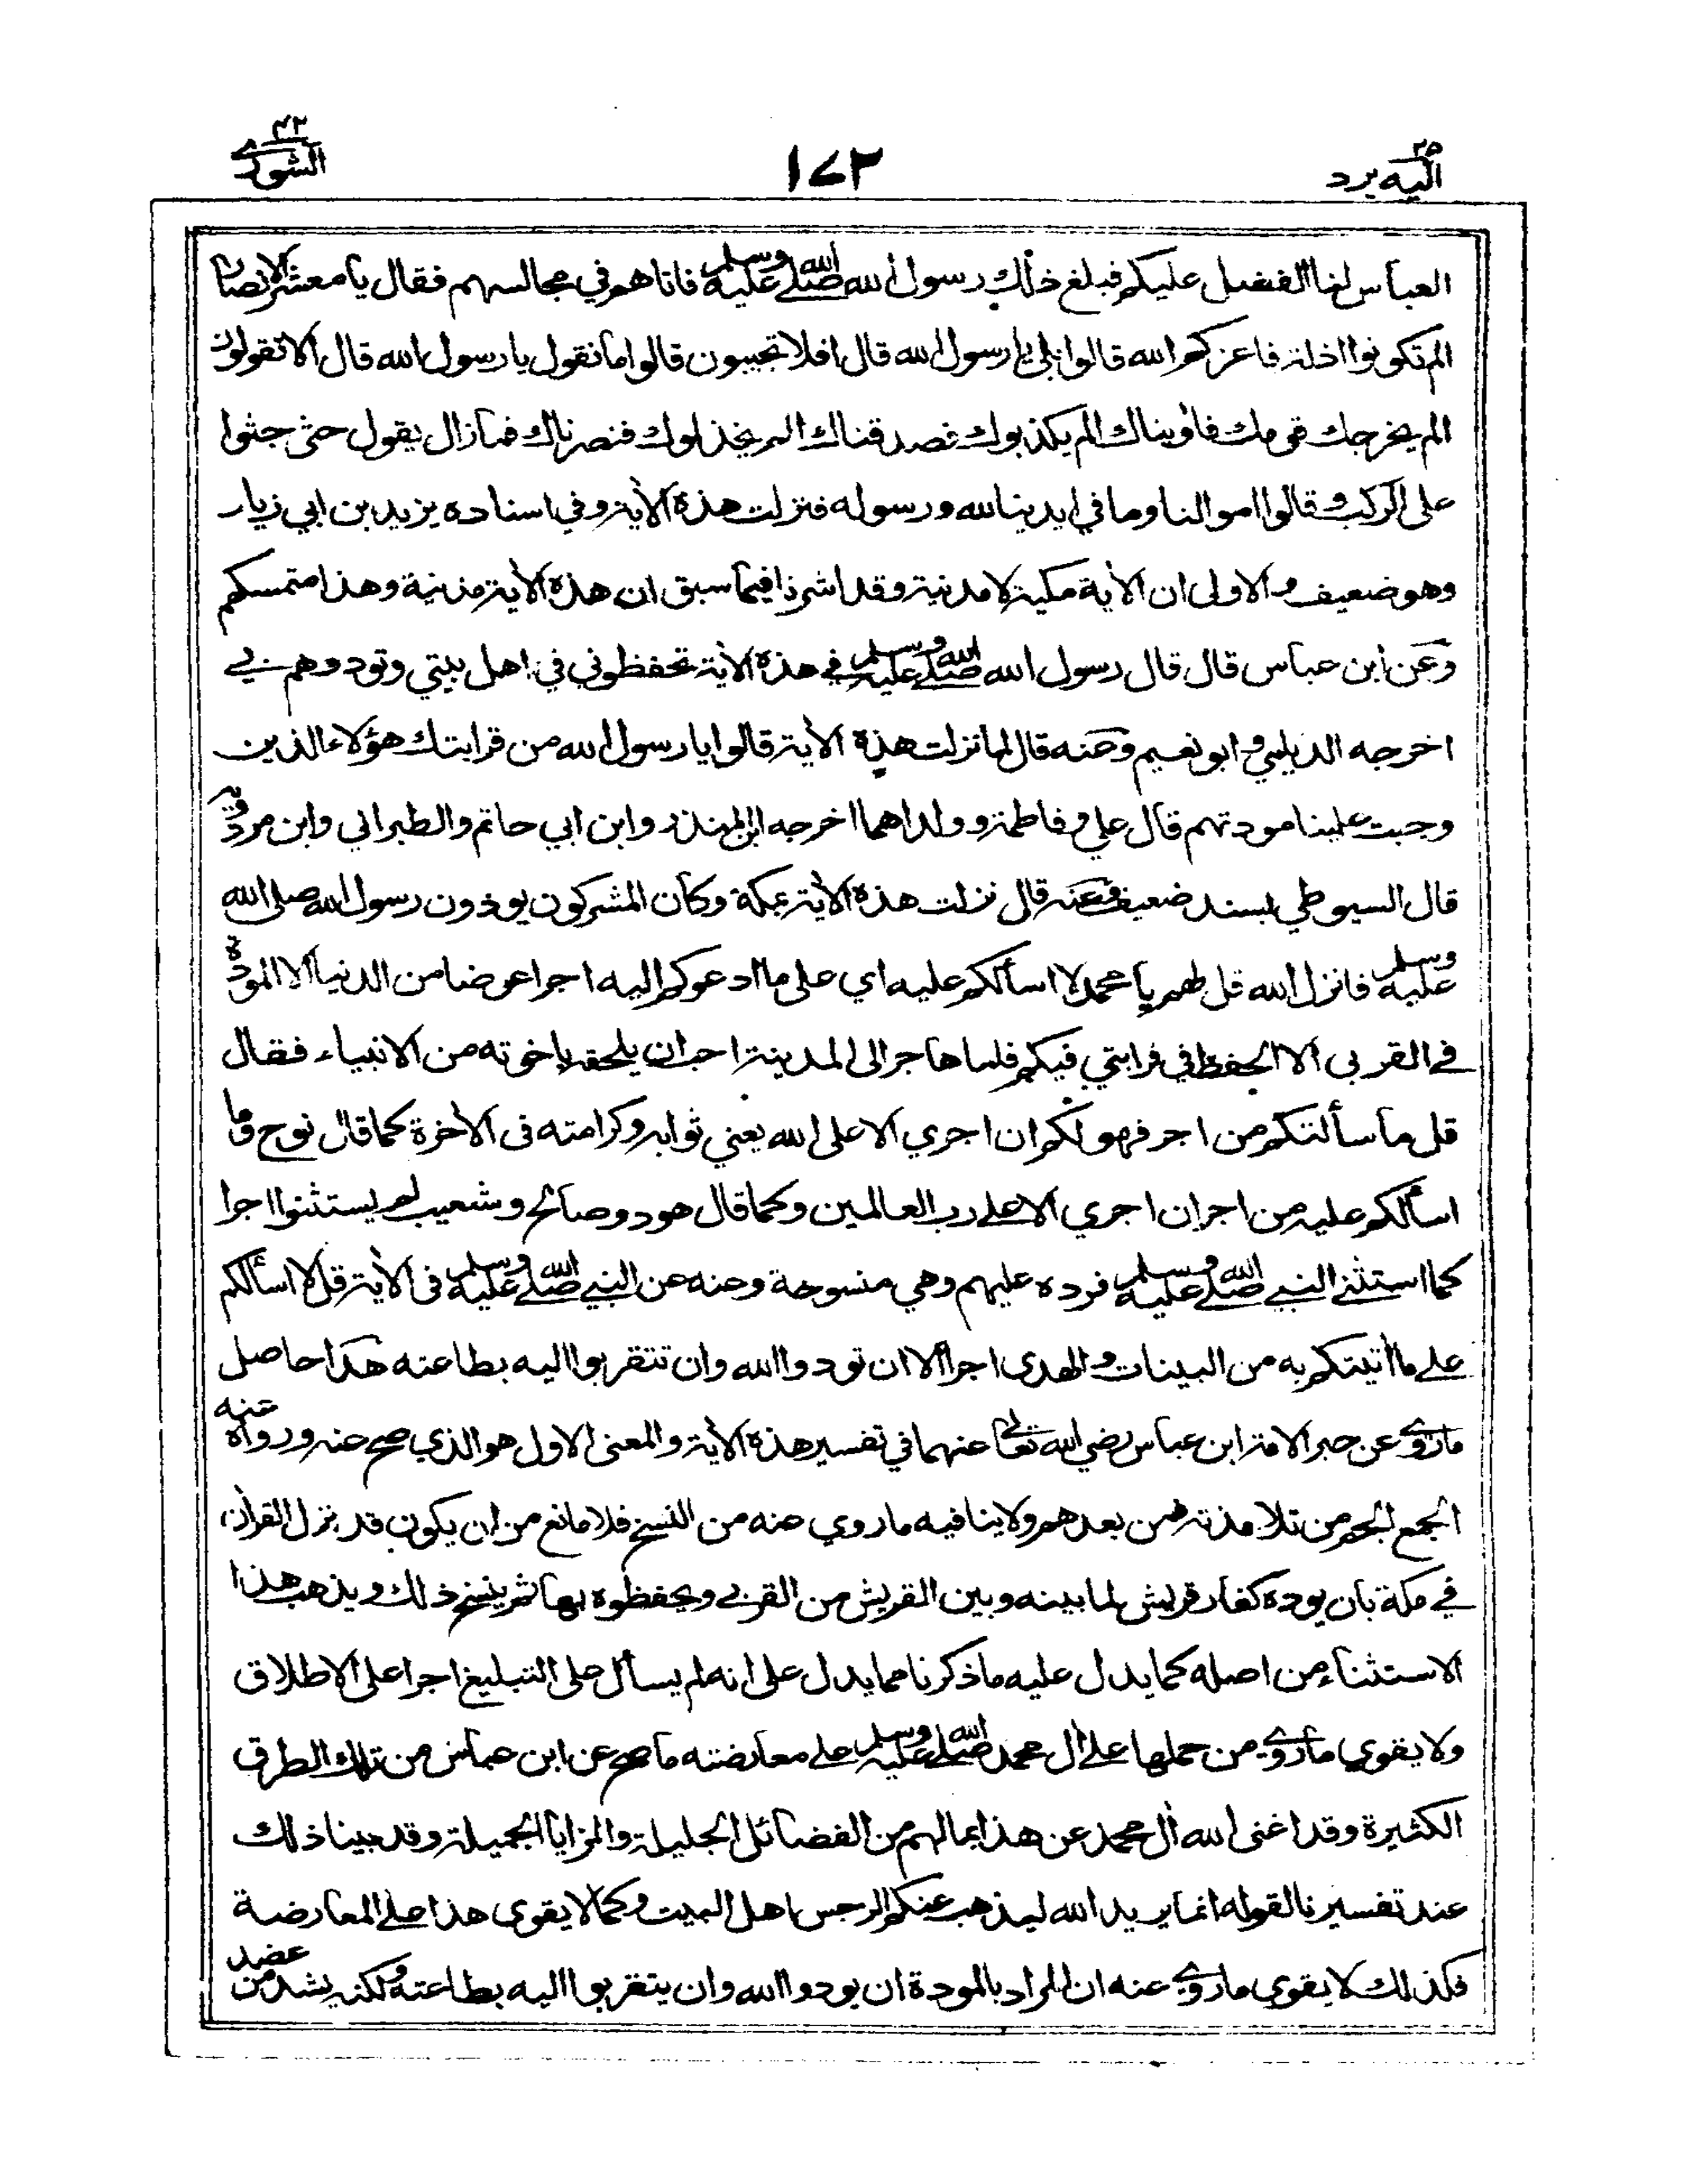 اليه يرد ٢٥
١٧٣
الشورى ٤٢
العباس لنا الفضل عليكم فبلغ ذلك رسول الله صلى الله عليه وسلم فاتاهم في مجالسهم فقال يا معشر الانصار
الم تكونوا اذلة فاعزكم الله قالوا بلى يا رسول الله قال افلا تجيبون قالوا ما نقول يا رسول الله قال الا تقولون
الم يخرجك قومك فأويناك الم يكذبوك فصدقناك الم يخذلوك فنصرناك فما زال يقول حتى جثوا
على الركب وقالوا اموالنا وما في ايدينا لله ورسوله فنزلت هذه الأية وفي اسناده يزيد بن ابي زياد
وهو ضعيف والاولى ان الأية مكية لا مدنية وقد اشرنا فيما سبق ان هذه الأية مدنية وهذا متمسكهم
وعن ابن عباس قال قال رسول الله صلى الله عليه وسلم في هذه الأية تحفظوني في اهل بيتي وتودوهم بي
اخرجه الديلمي وابو نعيم وعنه قال لما نزلت هذه الأية قالوا يا رسول الله من قرابتك هؤلاء الذين
وجبت علينا مودتهم قال علي وفاطمة وولداهما اخرجه ابن المنذر وابن ابي حاتم والطبراني وابن مردويه
قال السيوطي بسند ضعيف وعنه قال نزلت هذه الأية بمكة وكان المشركون يوذون رسول الله صلى الله
عليه وسلم فانزل الله قل لهم يا محمد لا اسألكم عليه اي على ما ادعوكم اليه اجرا عوضا من الدنيا الا المودة
في القربى الا الحفظ في قرابتي فيكم فلما هاجر الى المدينة احب ان يلحقه باخوته من الانبياء فقال
قل ما سألتكم من اجر فهو لكم ان اجري الا على الله يعني ثوابه وكرامته فى الأخرة كما قال نوح وما
اسألكم عليه من اجر ان اجري الا على رب العالمين وكما قال هود وصالح وشعيب لم يستثنوا اجرا
كما استثنى النبي صلى الله عليه وسلم فرده عليهم وهي منسوخة وعنه عن النبي صلى الله عليه وسلم فى الأية قل لا اسألكم
على ما أتيتكم به من البينات والهدى اجرا الا ان تودوا الله وان تتقربوا اليه بطاعته هذا حاصل
ما روي عن حبر الامة ابن عباس رضي الله تعالى عنهما في تفسير هذه الأية والمعنى الاول هو الذي صح عنه ورواه عنه
الجمع الجم من تلامذته فمن بعدهم ولا ينافيه ما روي عنه من النسخ فلا مانع من ان يكون قد نزل القرأن
في مكة بان يوده كفار قريش لما بينه وبين القريش من القربى ويحفظوه بها ثم ينسخ ذلك ويذهب هذا
الاستثناء من اصله كما يدل عليه ما ذكرنا مما يدل على انه لم يسأل على التبليغ اجرا على الاطلاق
ولا يقوى ما روي من حملها على أل محمد صلى الله عليه وسلم على معارضته ما صح عن ابن عباس من تلك الطرق
الكثيرة وقد اغنى الله أل محمد عن هذا بما لهم من الفضائل الجليلة والمزايا الجميلة وقد بينا ذلك
عند تفسيرنا لقوله انما يريد الله ليذهب عنكم الرجس اهل البيت وكما لا يقوى هذا على المعارضة
فكذلك لا يقوى ما روي عنه ان المراد بالمودة ان يودوا الله وان يتقربوا اليه بطاعته ولكنه يشد من عضد